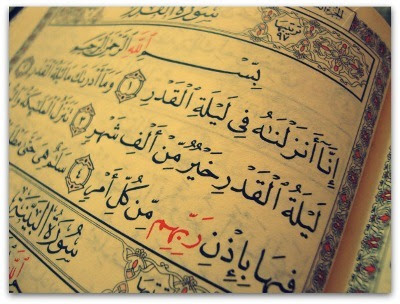 سُورَةُ الْقَدْرِ
بِسْمِ اللَّهِ الرَّحْمَٰنِ الرَّحِيمِ
إِنَّا أَنزَلْنَٰهُ فِي لَيْلَةِ الْقَدْرِ ١ وَمَا أَدْرَىٰكَ مَا لَيْلَةُ الْقَدْرِ ٢
لَيْلَةُ الْقَدْرِ خَيْرٌ مِّنْ أَلْفِ شَهْرٍ ٣ تَنَزَّلُ الْمَلَٰٓئِكَةُ
فِيهَا بِإِذْنِ رَبِّهِم مِّن كُلِّ أَمْرٍ ٤ سَلَٰمٌ هِيَ حَتَّىٰ
سُورَةُ الْبَيِّنَةِ